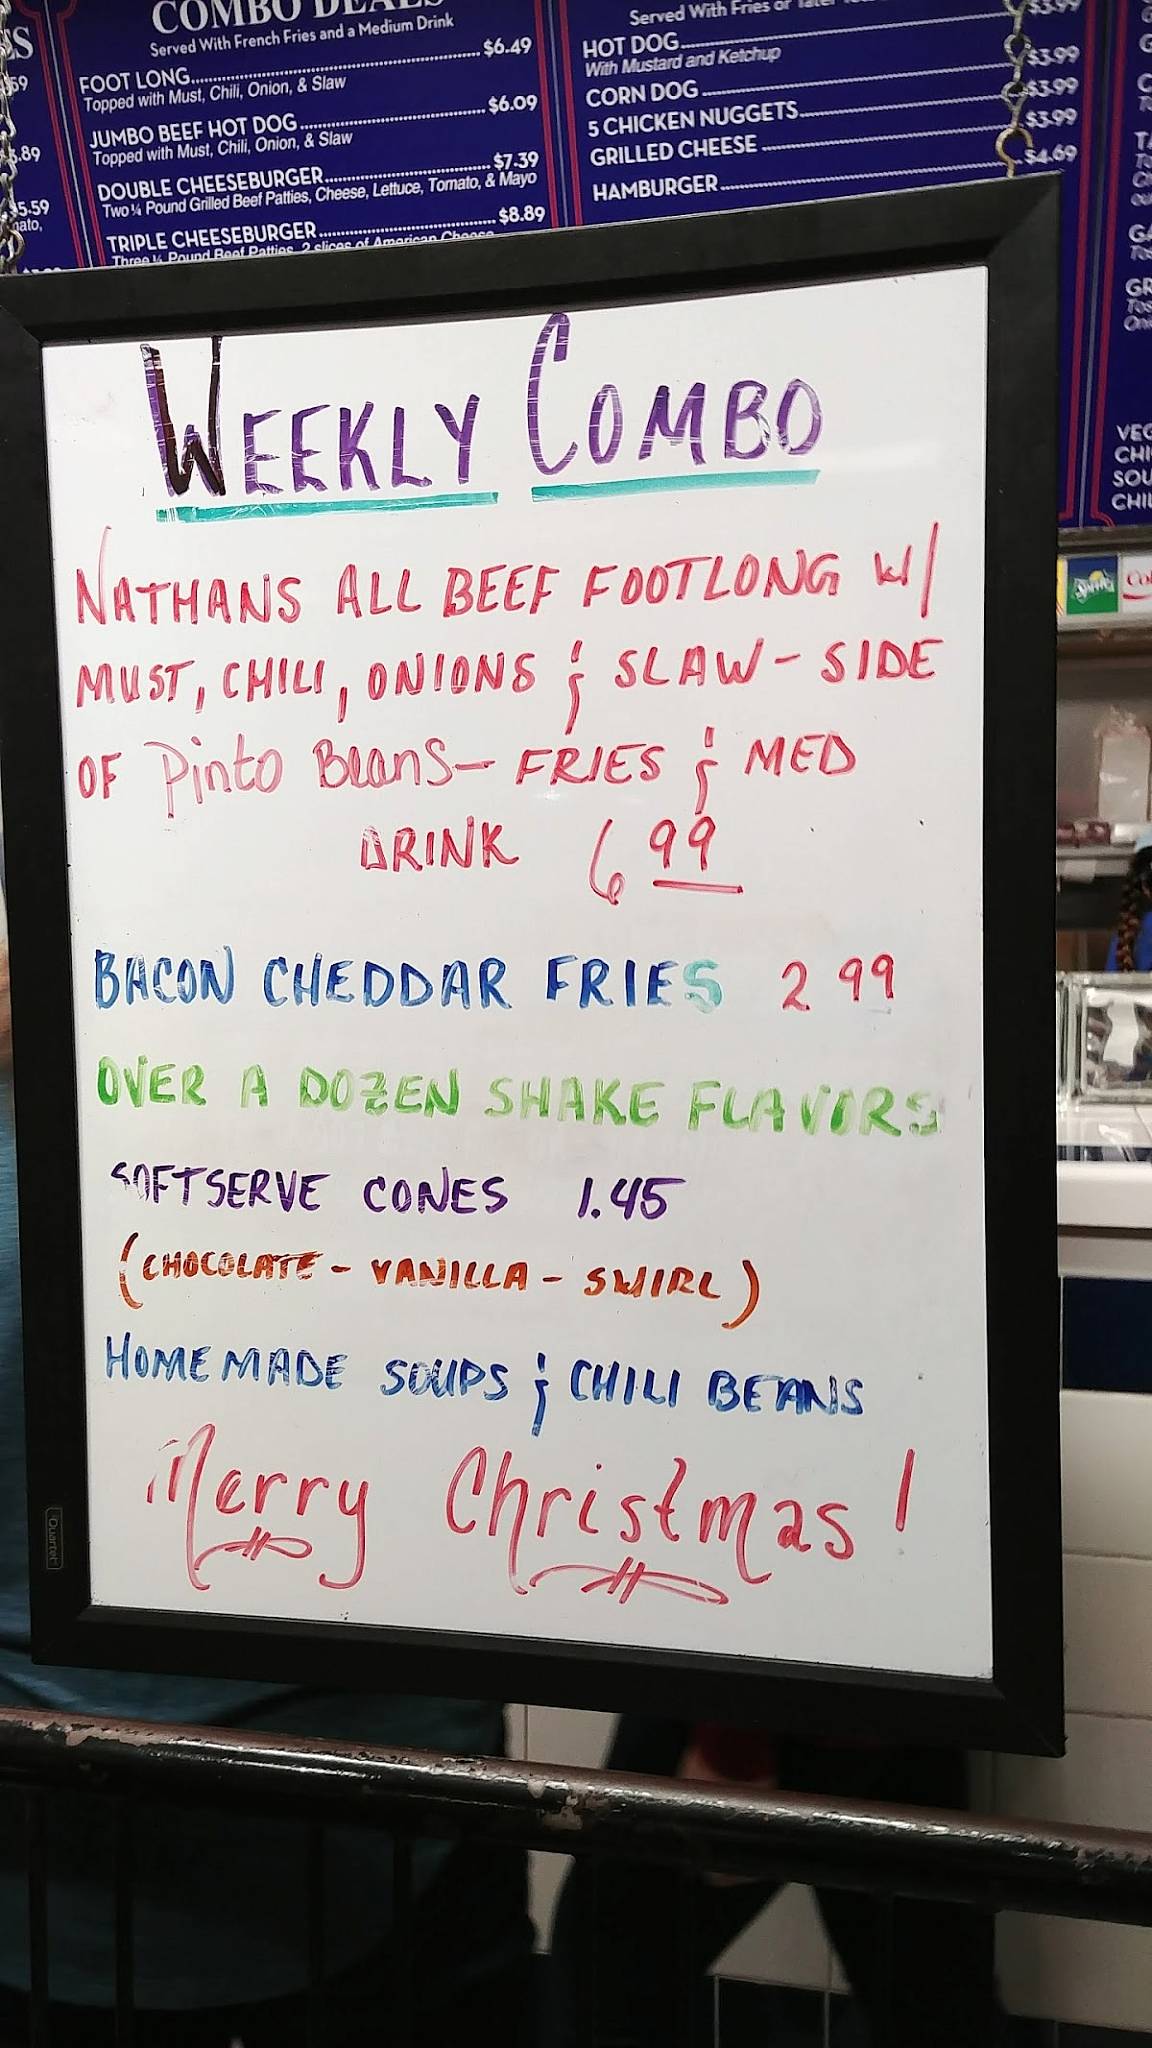 COMBO DEALS
Served With French Fries and a Medium Drink
FOOT LONG $6.49
Topped with Must, Chili, Onion, & Slaw
JUMBO BEEF HOT DOG $6.09
Topped with Must, Chili, Onion, & Slaw
DOUBLE CHEESEBURGER $7.39
Two ¼ Pound Grilled Beef Patties, Cheese, Lettuce, Tomato, & Mayo
TRIPLE CHEESEBURGER $8.89
Three ¼ Pound Beef Patties, 2 slices of American Cheese
Served With Fries or
$3.99
HOT DOG $3.99
With Mustard and Ketchup
CORN DOG $3.99
5 CHICKEN NUGGETS $3.99
GRILLED CHEESE $4.69
HAMBURGER
WEEKLY COMBO
NATHANS ALL BEEF FOOTLONG W/
MUST, CHILI, ONIONS & SLAW - SIDE
OF Pinto Beans - FRIES & MED
DRINK 6 99
BACON CHEDDAR FRIES 2 99
OVER A DOZEN SHAKE FLAVORS
SOFTSERVE CONES 1.45
(CHOCOLATE - VANILLA - SWIRL)
HOMEMADE SOUPS & CHILI BEANS
Merry Christmas!
Quartet
Sprite